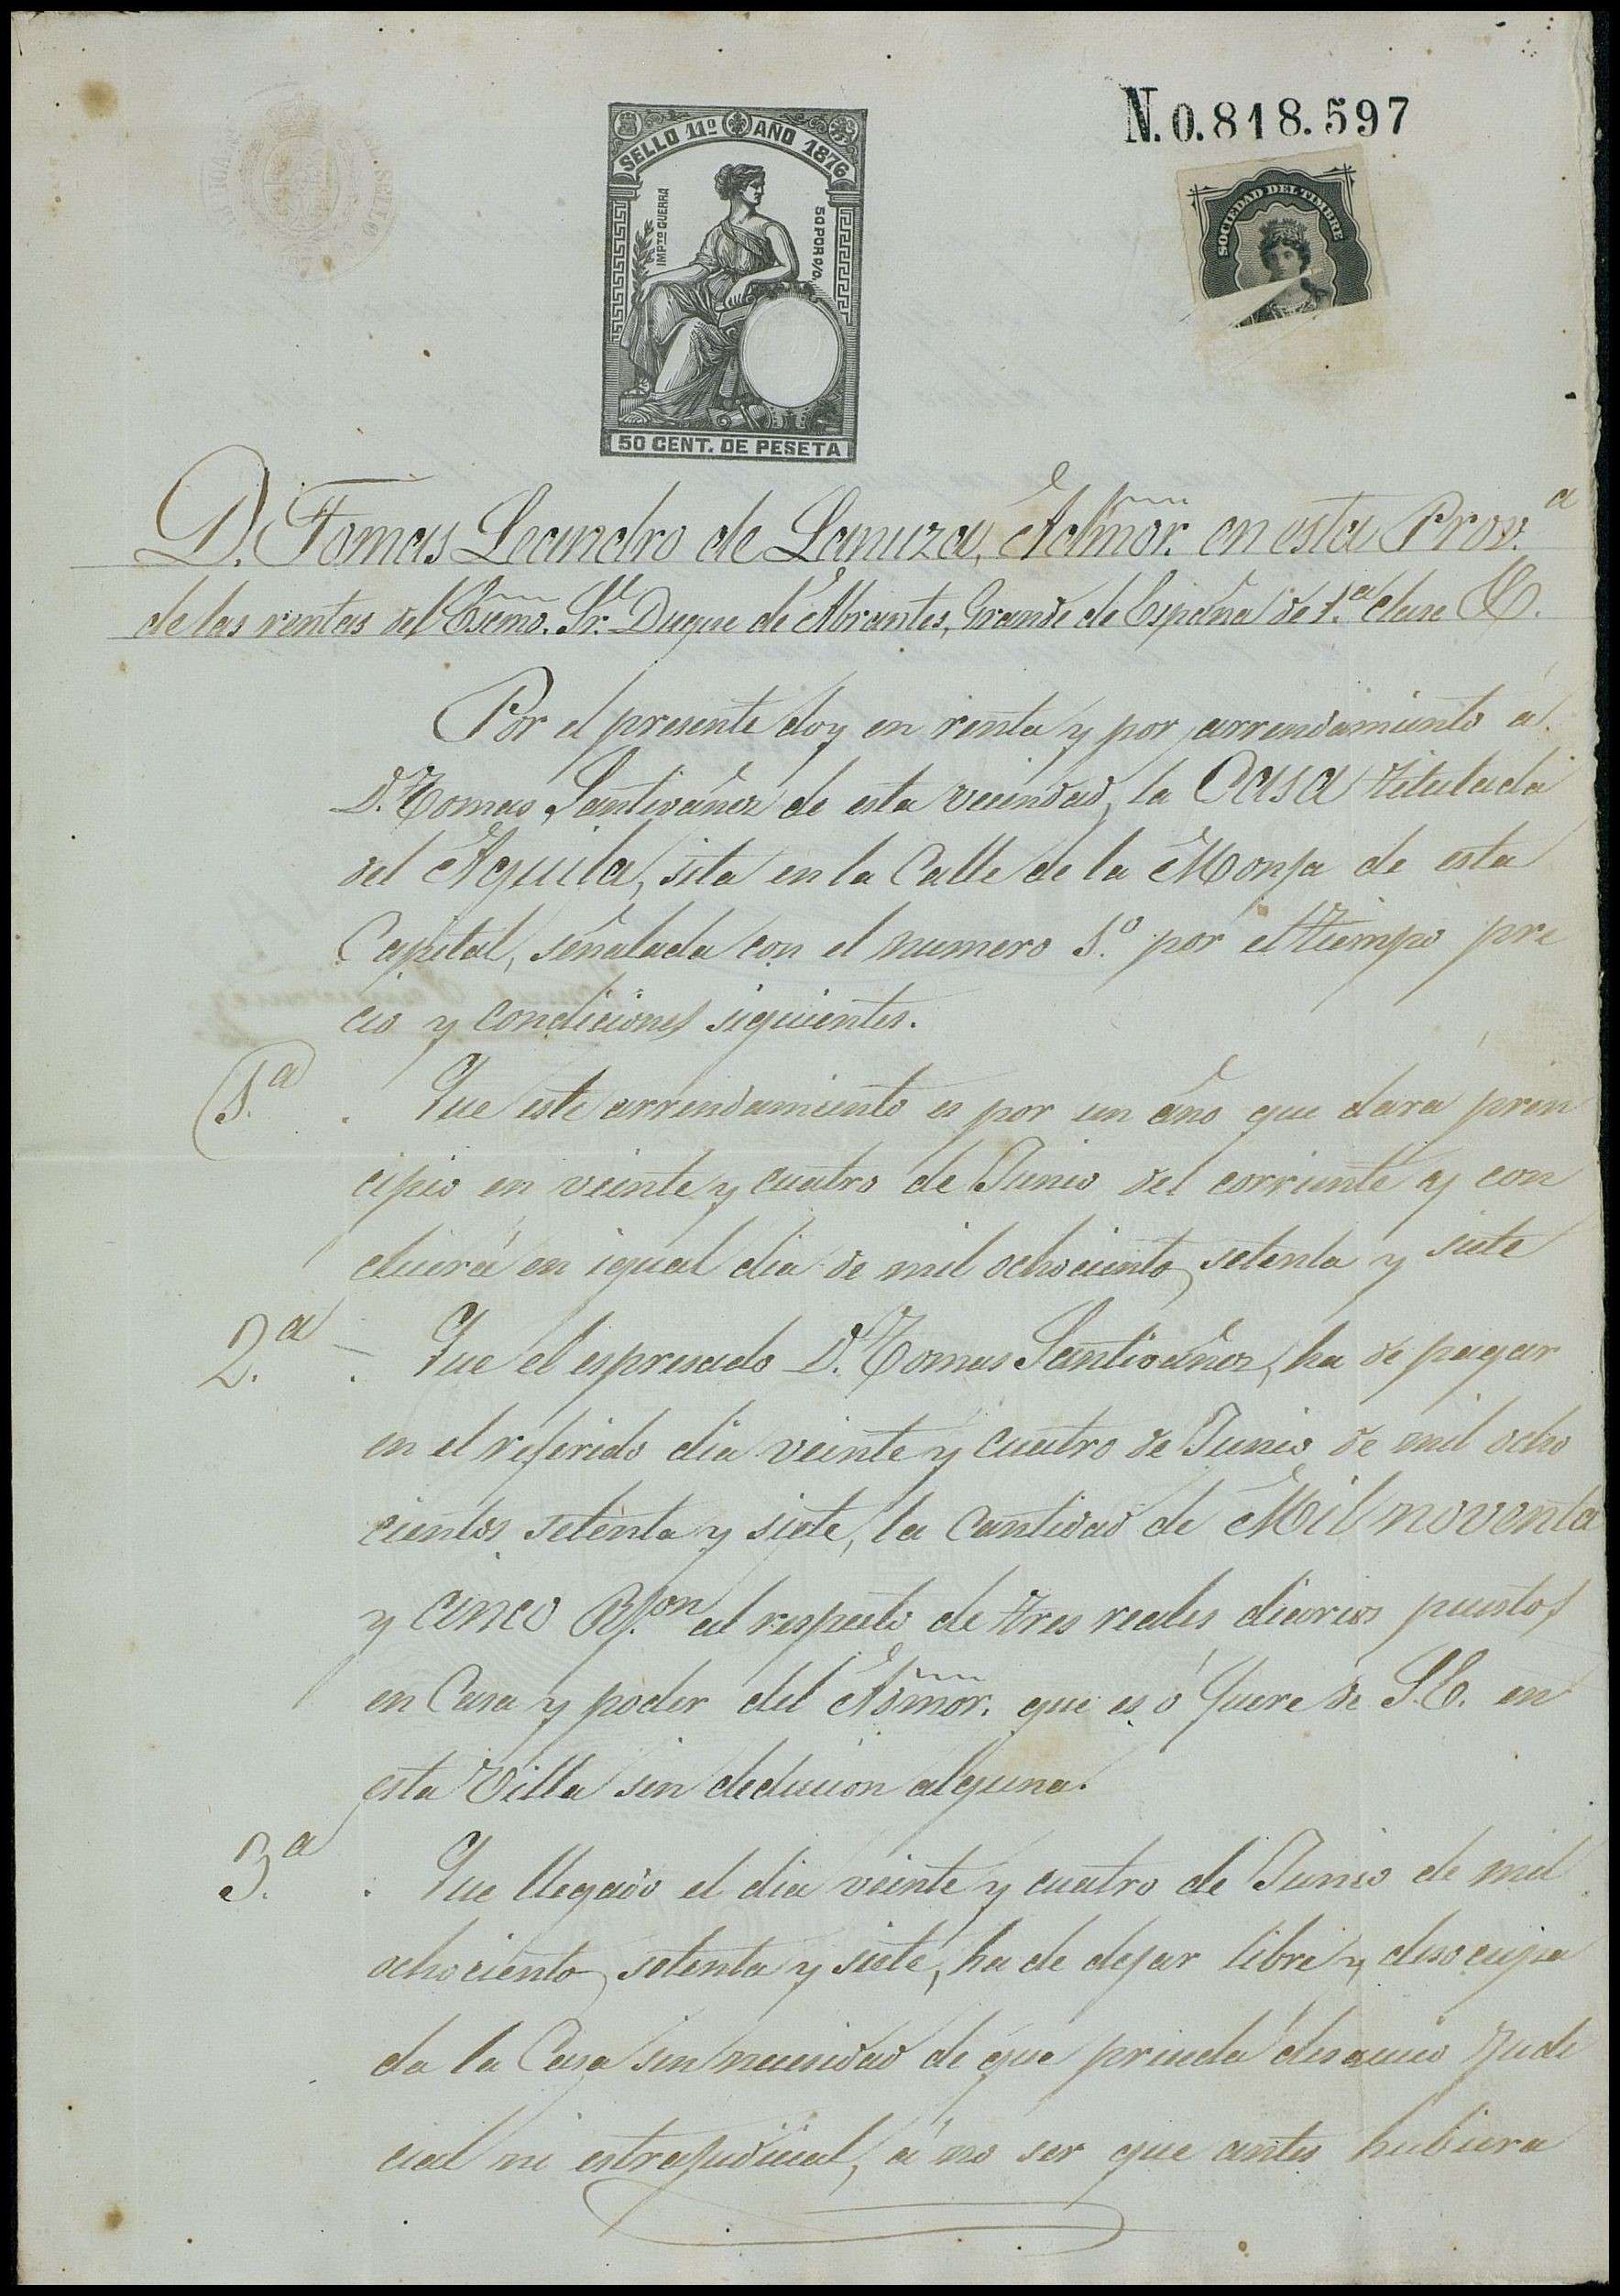 N.0.818.597
SELLO 11º AÑO 1876
IMPTO GUERRA
50 POR 0/0
50 CENT. DE PESETA
SOCIEDAD DEL TIMBRE
D. Tomas Leandro de Lanuza, Admor. en esta Prov.ª
de las rentas del Esemo. Sr. Duque de Abrantes, Grande de España de 1.ª clase &.
Por el presente doy en renta y por arrendamiento á
D. Tomas Santivañez de esta vecindad, la Casa titulada
del Aguila, sita en la Calle de la Monja de esta
Capital, señalada con el numero 1.º por el tiempo pre
cio y condiciones siguientes.
1.ª Que este arrendamiento es por un año que dará prin
cipio en veinte y cuatro de Junio del corriente y con
cluirá en igual dia de mil ochocientos setenta y siete
2.ª Que el espresado D. Tomas Santivañez, ha de pagar
en el referido dia veinte y cuatro de Junio de mil ocho
cientos setenta y siete, la cantidad de Mil noventa
y cinco R.ˢ ᵒⁿ al respecto de tres reales diarios puestos
en Casa y poder del Admor. que es ó fuere de S.E. en
esta Villa sin deducion alguna.
3.ª Que llegado el dia veinte y cuatro de Junio de mil
ochocientos setenta y siete, ha de dejar libre y desocupa
da la Casa sin necesidad de que preceda desaucio Judi
cial ni estrajudicial, á no ser que antes hubiera